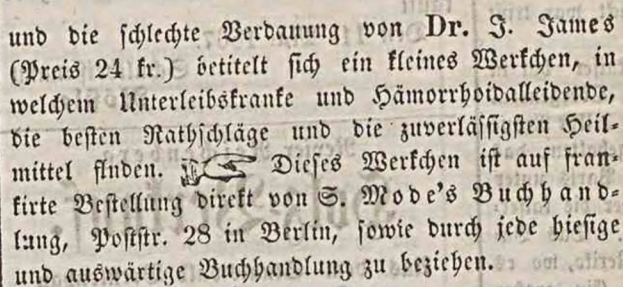 und die schlechte Verdauung von Dr. J. James
(Preis 24 kr.) betitelt sich ein kleines Werkchen, in
welchem Unterleibskranke und Hämorrhoidalleidende,
die besten Rathschläge und die zuverlässigsten Heil-
mittel finden. ☞ Dieses Werkchen ist auf fran-
kirte Bestellung direkt von S. Mode's Buchhand-
lung, Poststr. 28 in Berlin, sowie durch jede hiesige
und auswärtige Buchhandlung zu beziehen.